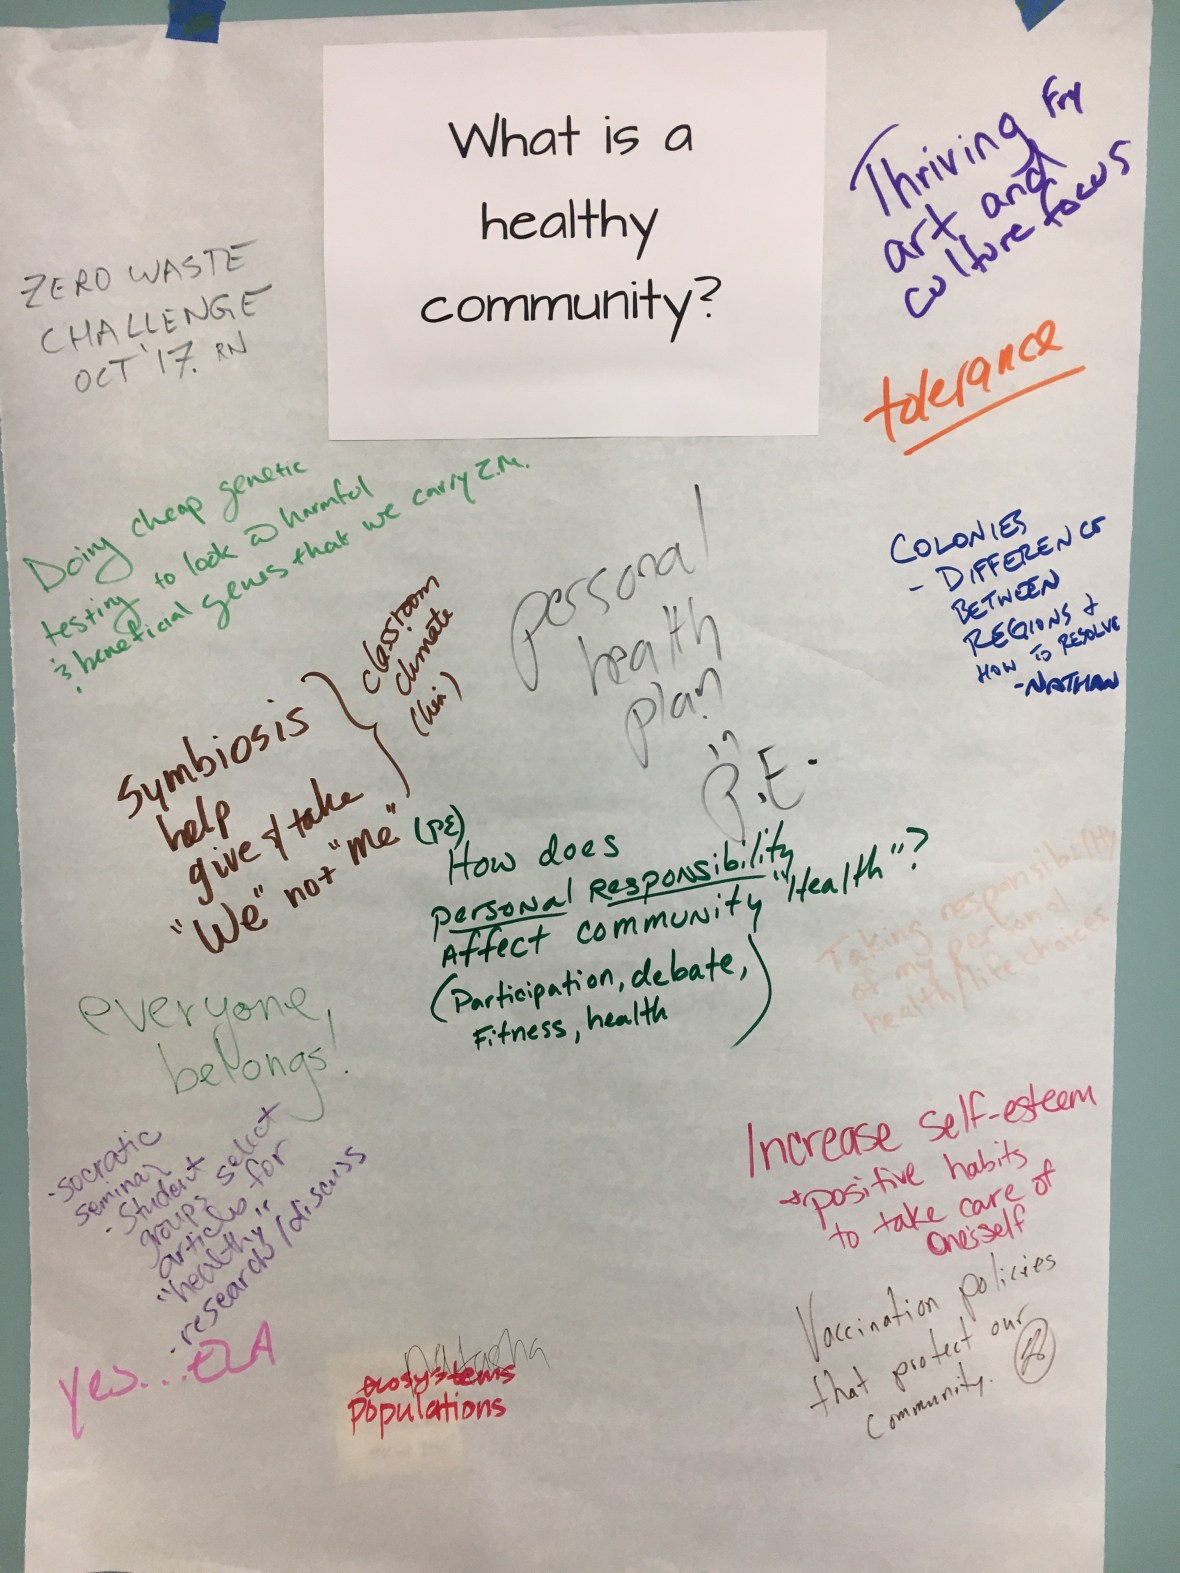 What is a
healthy
community?
Thriving Fry
art and
culture focus
ZERO WASTE
CHALLENGE
OCT '17. RN
tolerance
Doing cheap genetic
testing to look @ harmful
& beneficial genes that we carry Z.M.
personal
health
plan
in
P.E.
COLONIES
- DIFFERENCE
BETWEEN
REGIONS &
HOW TO RESOLVE
- NATHAN
symbiosis
help
give & take
"We" not "me"
classroom
climate
(PE)
How does
personal Responsibility
Affect community "Health"?
(Participation, debate,
Fitness, health)
Taking responsibility
of my personal
health/life choices
everyone
belongs!
- socratic
seminar
- Student
groups select
articles for
"healthy"
- research/discuss
yes... ELA
Increase self-esteem
positive habits
to take care of
oneself
Vaccination policies
that protect our
community.
Natasha
ecosystems
populations